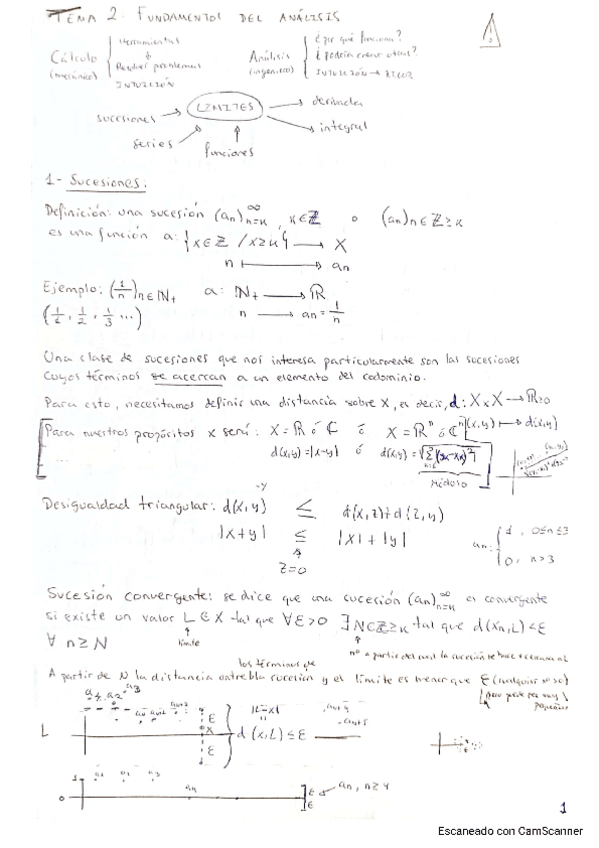 TEMA 2. FUNDAMENTOS DEL ANÁLISIS
Cálculo (mecánico) { Herramientas ↓ Resolver problemas INTUICIÓN
Análisis (ingeniero) { ¿por qué funcionan? ¿podría crear otras? INTUICIÓN → RIGOR
sucesiones → LÍMITES → derivadas
series funciones → integral
1- Sucesiones:
Definición: una sucesión (an)∞n=k, k∈ℤ o (an)n∈ℤ≥k
es una función a: {x∈ℤ / x≥k} → X
n ↦ an
Ejemplo: (1/n)n∈ℕ+ a: ℕ+ → ℝ
(1/1, 1/2, 1/3 ...) n → an = 1/n
Una clase de sucesiones que nos interesa particularmente son las sucesiones
cuyos términos se acercan a un elemento del codominio.
Para esto, necesitamos definir una distancia sobre X, es decir, d: X x X → ℝ≥0
Para nuestros propósitos X será: X = ℝ ó ℂ ó X = ℝⁿ ó ℂⁿ (x,y) ↦ d(x,y)
... d(x,y) = |x-y| ó d(x,y) =
módulo
-y
Desigualdad triangular: d(x,y) ≤ d(x,z)+d(z,y)
|x+y| ≤ |x| + |y|
z=0
an: { 1, 0≤n≤3
0, n>3
Sucesión convergente: se dice que una sucesión (an)∞n=k es convergente
si existe un valor L∈X tal que ∀ε>0 ∃N∈ℤ≥k tal que d(xn,L)≤ε
∀ n≥N
límite
nº a partir del cual la sucesión se hace
los términos de
A partir de N la distancia entre la sucesión y el límite es menor que ε (cualquier nº >0)
pequeño
a1 a2 a3
|L-x|
L ε x ε } d(x,L)≤ε
1 a1 a2 a3
0 an ε ε ← an, n≥4
1
Escaneado con CamScanner